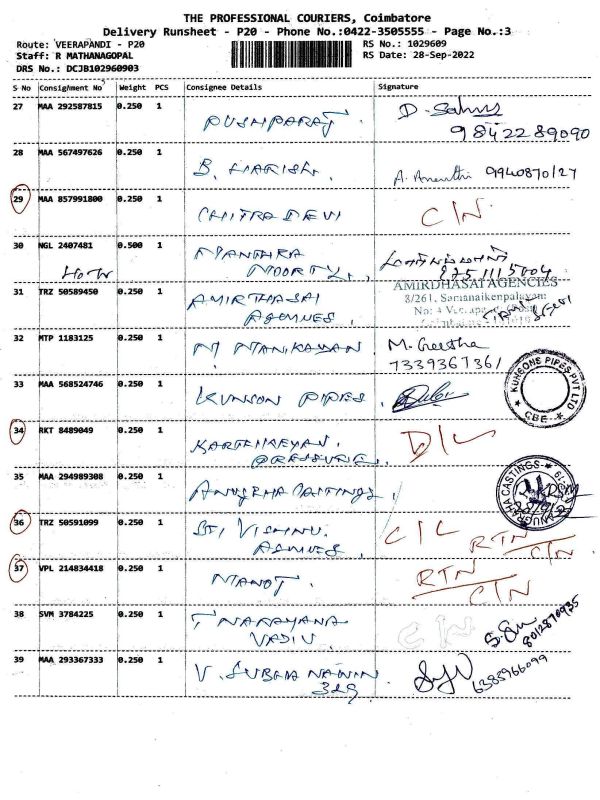 THE PROFESSIONAL COURIERS, Coimbatore
Delivery Runsheet - P20 - Phone No.:0422-3505555 - Page No.:3
Route: VEERAPANDI - P20 RS No.: 1029609
Staff: R MATHANAGOPAL RS Date: 28-Sep-2022
DRS No.: DCJB102960903
S No Consignment No Weight PCS Consignee Details Signature
27 MAA 292587815 0.250 1 PUSHPARAJ
9842289090
28 MAA 567497626 0.250 1 B. HARISH. 9940870127
29 MAA 857991800 0.250 1 CHITRA DEVI C/N
30 NGL 2407481 0.500 1 MANTHRA
MOORTY 8751115004
31 TRZ 50589450 0.250 1 AMIRTHASAI AMIRDHASAI AGENCIES
8/261, Samanaikenpalayam
32 MTP 1183125 0.250 1 M MANIKANDAN M. Geetha
7339367361
33 MAA 568524746 0.250 1 KUNSON PIPES KUNSONS PIPES PVT LTD
CBE
34 RKT 8489049 0.250 1 KARTHIKEYAN D/L
35 MAA 294989308 0.250 1 ANUGRHA CASTINGS ANUGRAHA CASTINGS
36 TRZ 50591099 0.250 1 SRI VISHNU. C/L RTN
C/N
37 VPL 214834418 0.250 1 MANOJ. RTN
C/N
38 SVM 3784225 0.250 1 T NARAYANA C N
VADIV 8012870935
39 MAA 293367333 0.250 1 V. SUBRAMANIN
329 6383966099